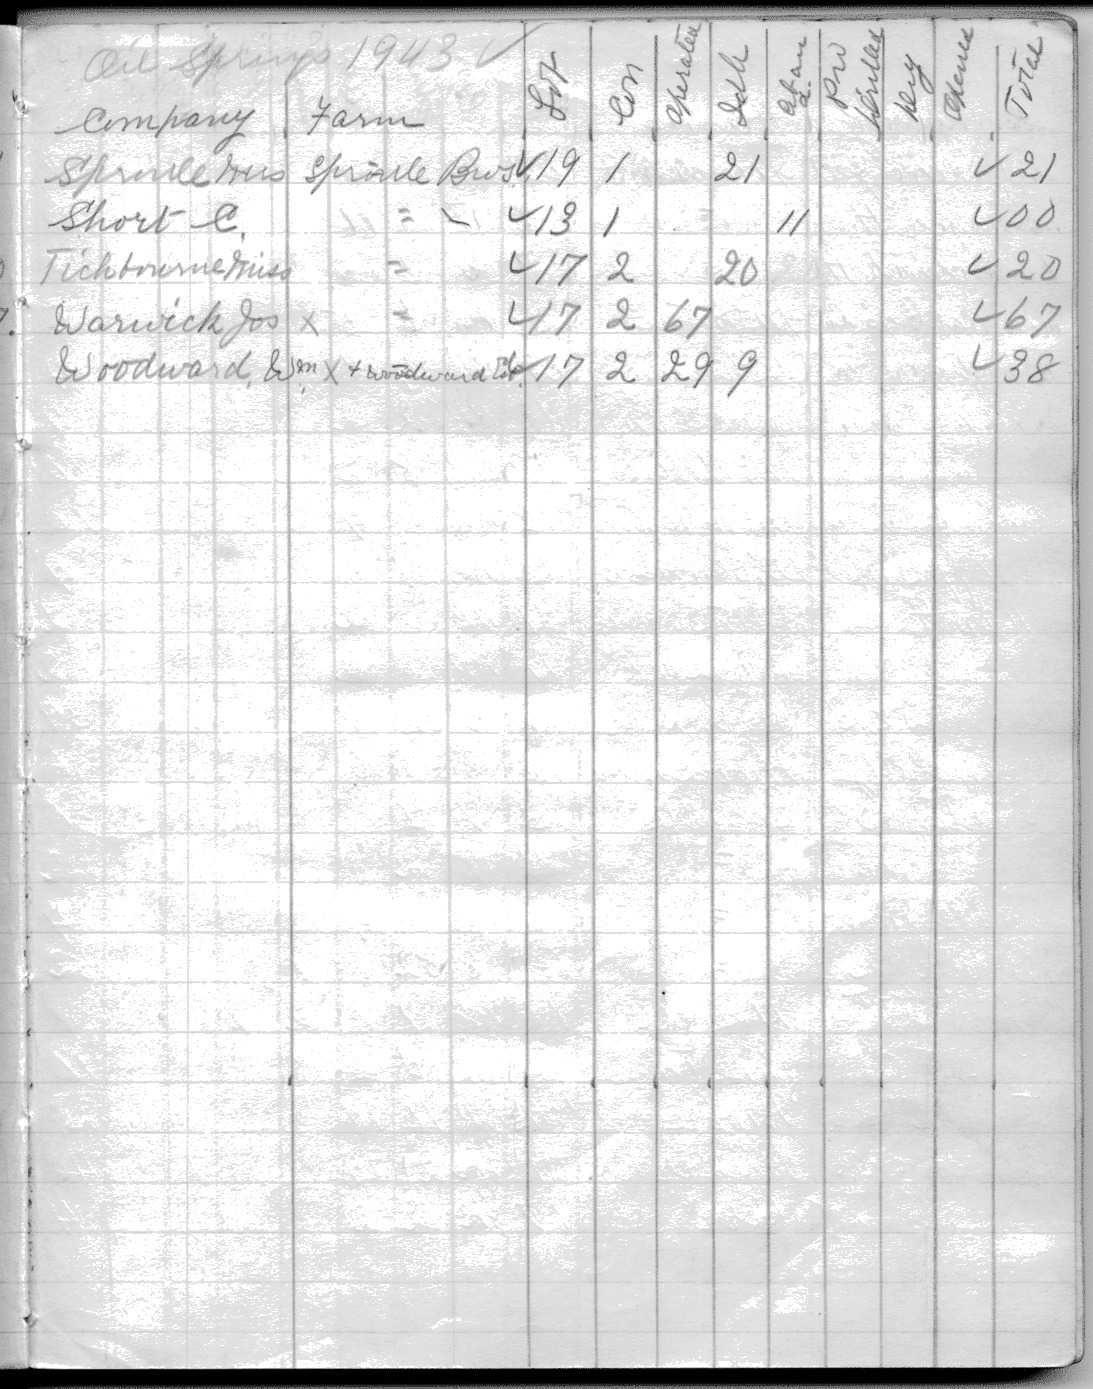 Oil Springs 1943 ✓
Company Farm Lot Con Operated Idle Aban d. Pro Drilled Dry Opened Total
Sproule Miss Sproule Bros. ✓ 19 1 21 ✓ 21
Short C. = ✓ 13 1 11 ✓ 00
Tichbourne Miss = ✓ 17 2 20 ✓ 20
Warwick Jos X = ✓ 17 2 67 ✓ 67
Woodward, Wm X + Woodward Est. ✓ 17 2 29 9 ✓ 38